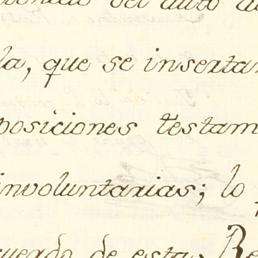 del auto de
la, que se insertan
posiciones testam
involuntarias; lo
cuerdo de esta Re